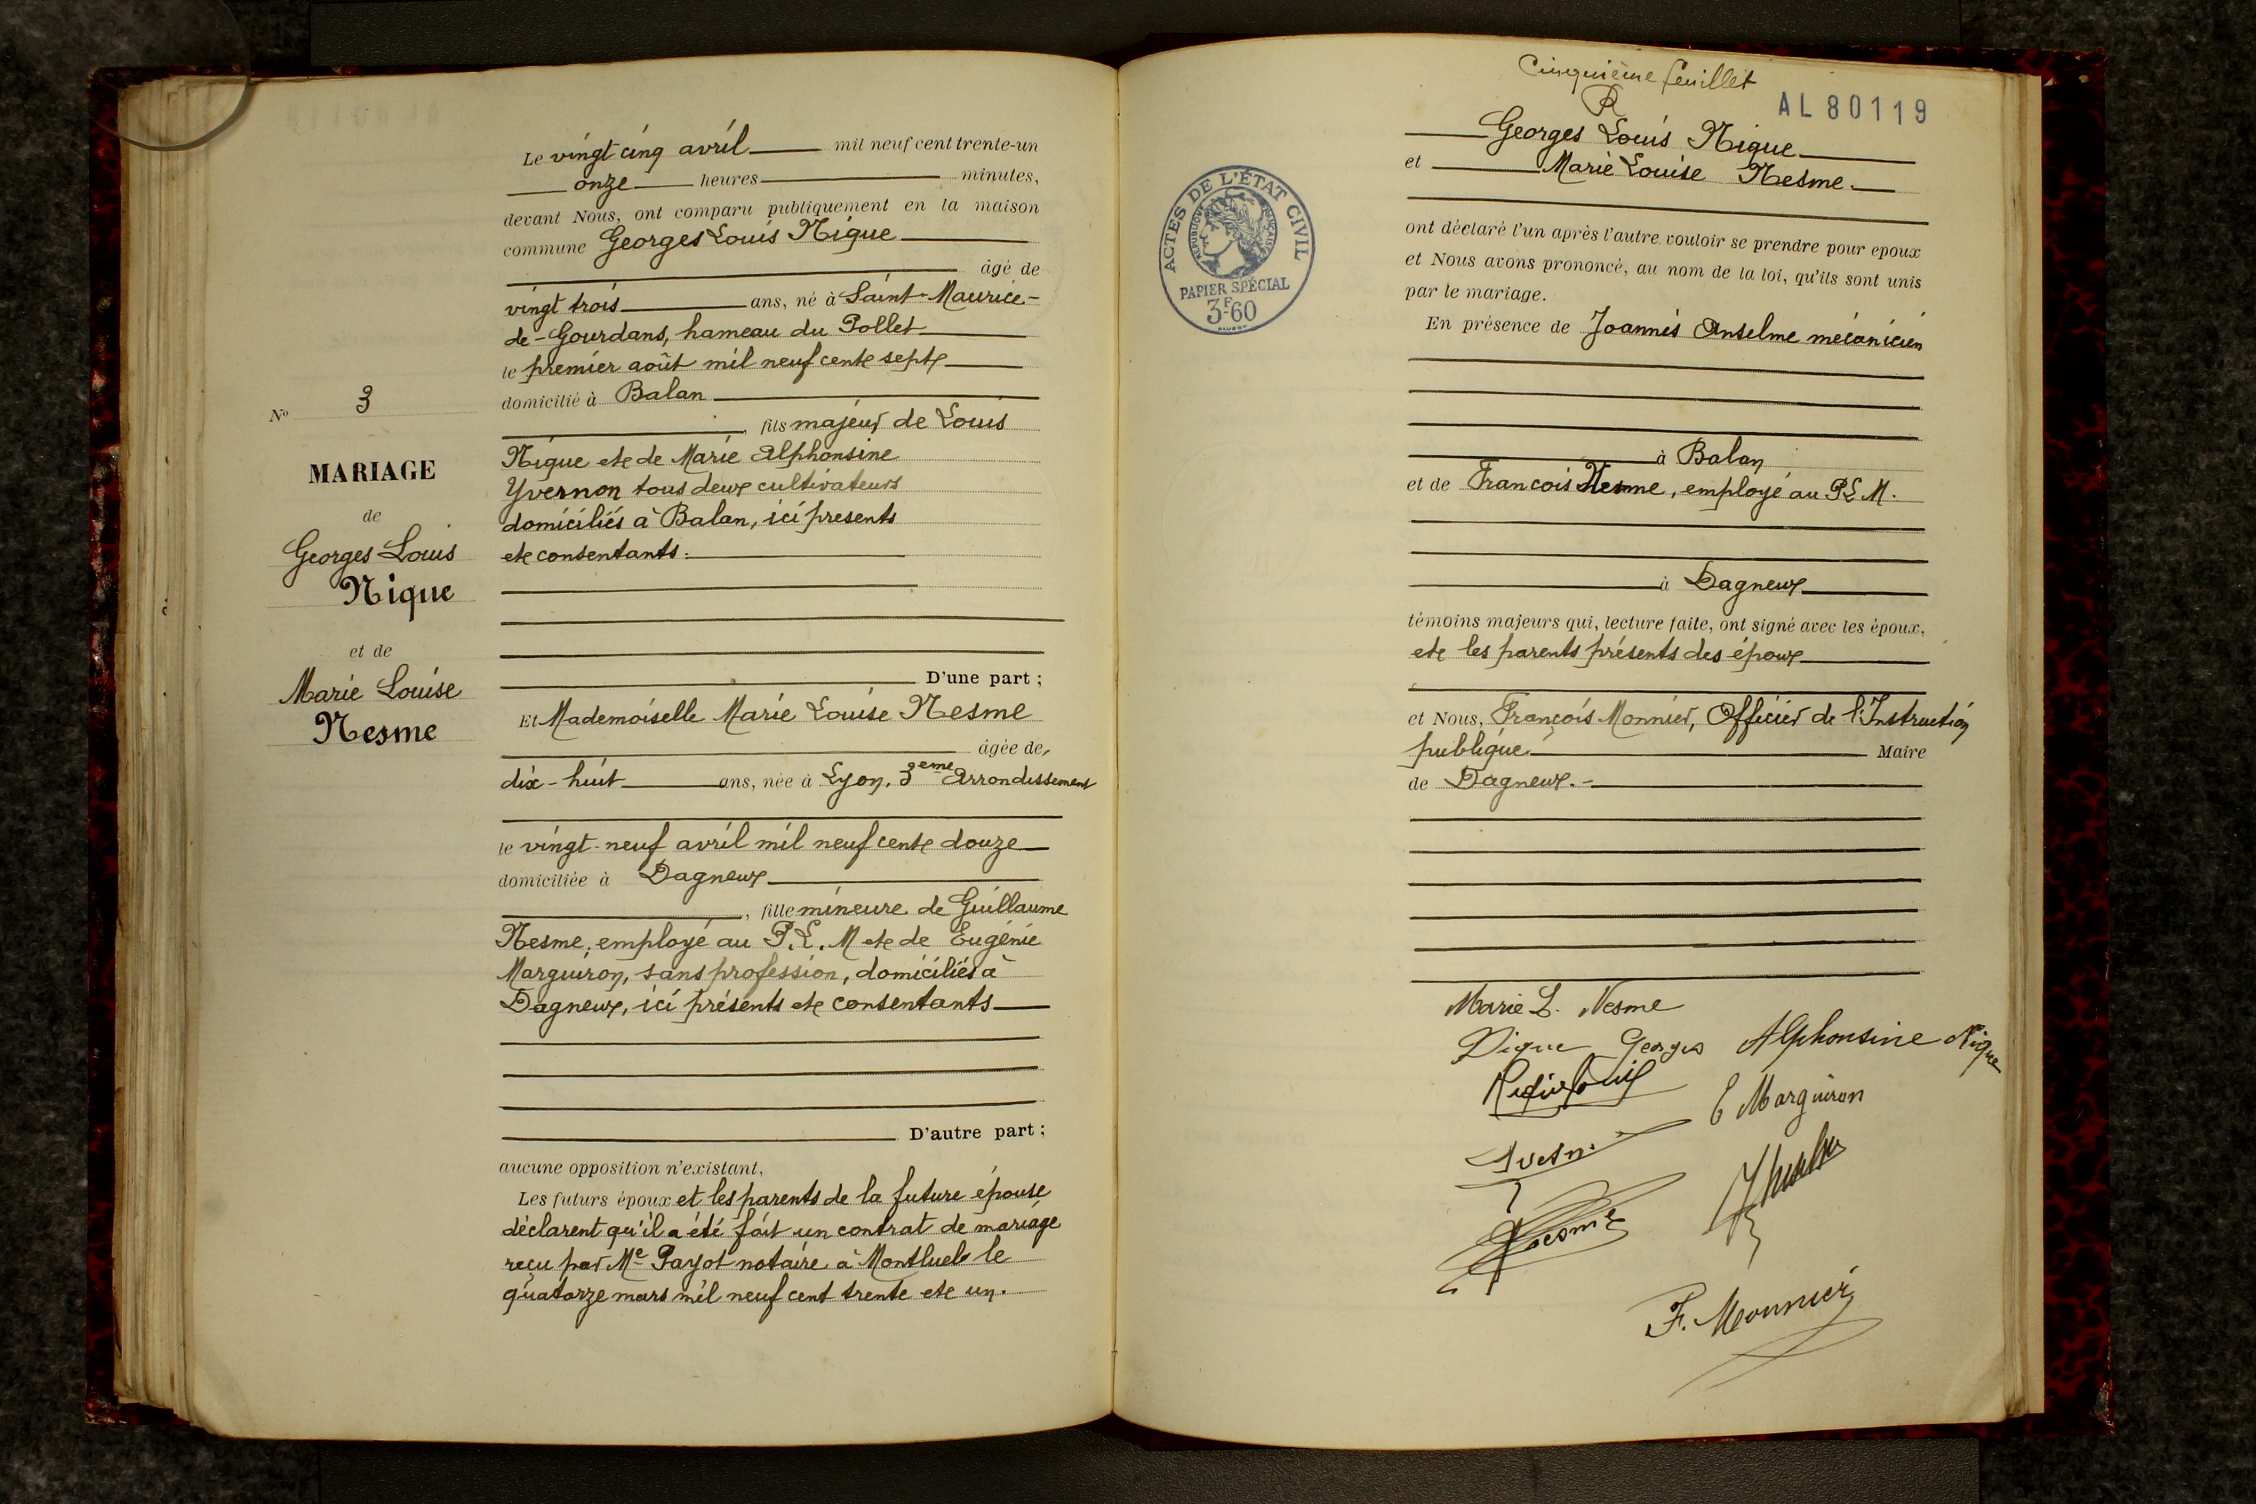 Le vingt cinq avril mil neuf cent trente-un
onze heures minutes,
devant Nous, ont comparu publiquement en la maison
commune Georges Louis Nique
âgé de
vingt trois ans, né à Saint-Maurice-
de-Gourdans, hameau du Pollet
le premier août mil neuf cent sept
domicilié à Balan
, fils majeur de Louis
Nique et de Marie Alphonsine
Yvernon tous deux cultivateurs
domiciliés à Balan, ici presents
et consentants.
D'une part ;
Et Mademoiselle Marie Louise Nesme
âgée de
dix-huit ans, née à Lyon, 3eme Arrondissement
le vingt-neuf avril mil neuf cent douze
domiciliée à Dagneux
, fille mineure de Guillaume
Nesme, employé au P.L.M et de Eugénie
Marguiron, sans profession, domiciliés à
Dagneux, ici présents et consentants
D'autre part ;
aucune opposition n'existant,
Les futurs époux et les parents de la future épouse
déclarent qu'il a été fait un contrat de mariage
reçu par Me Payot notaire à Montluel le
quatorze mars mil neuf cent trente et un.
No 3
MARIAGE
de
Georges Louis
Nique
et de
Marie Louise
Nesme
Cinquième feuillet
AL 80119
Georges Louis Nique
et Marie Louise Nesme.
ont déclaré l'un après l'autre vouloir se prendre pour epoux
et Nous avons prononcé, au nom de la loi, qu'ils sont unis
par le mariage.
En présence de Joannès Anselme mécanicien
à Balan
et de François Nesme, employé au P.L.M.
à Dagneux
témoins majeurs qui, lecture faite, ont signé avec les époux,
et les parents présents des époux
et Nous, François Monnier, Officier de l'Instruction
publique Maire
de Dagneux.-
ACTES DE L'ÉTAT CIVIL
RÉPUBLIQUE FRANÇAISE
PAPIER SPÉCIAL
3F60
Marie L. Nesme
Nique Georges Alphonsine Nique
Nique Louis
E Marguiron
Nesme
F. Monnier